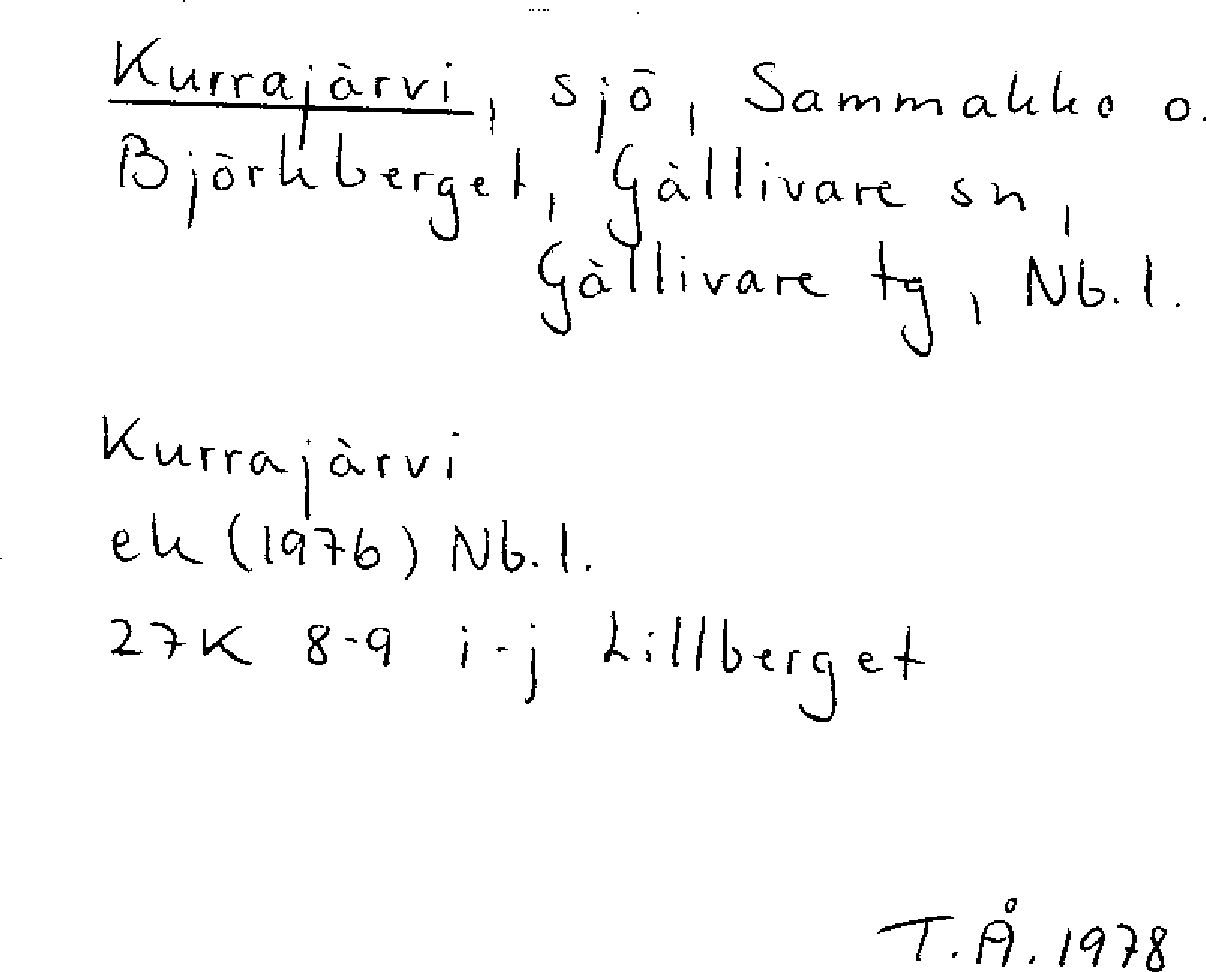 Kurrajärvi, sjö, Sammakko o.
Björkberget, Gällivare sn,
Gällivare tg, Nb. l.
Kurrajärvi
ek (1976) Nb. l.
27K 8-9 i-j Lillberget
T.Å. 1978